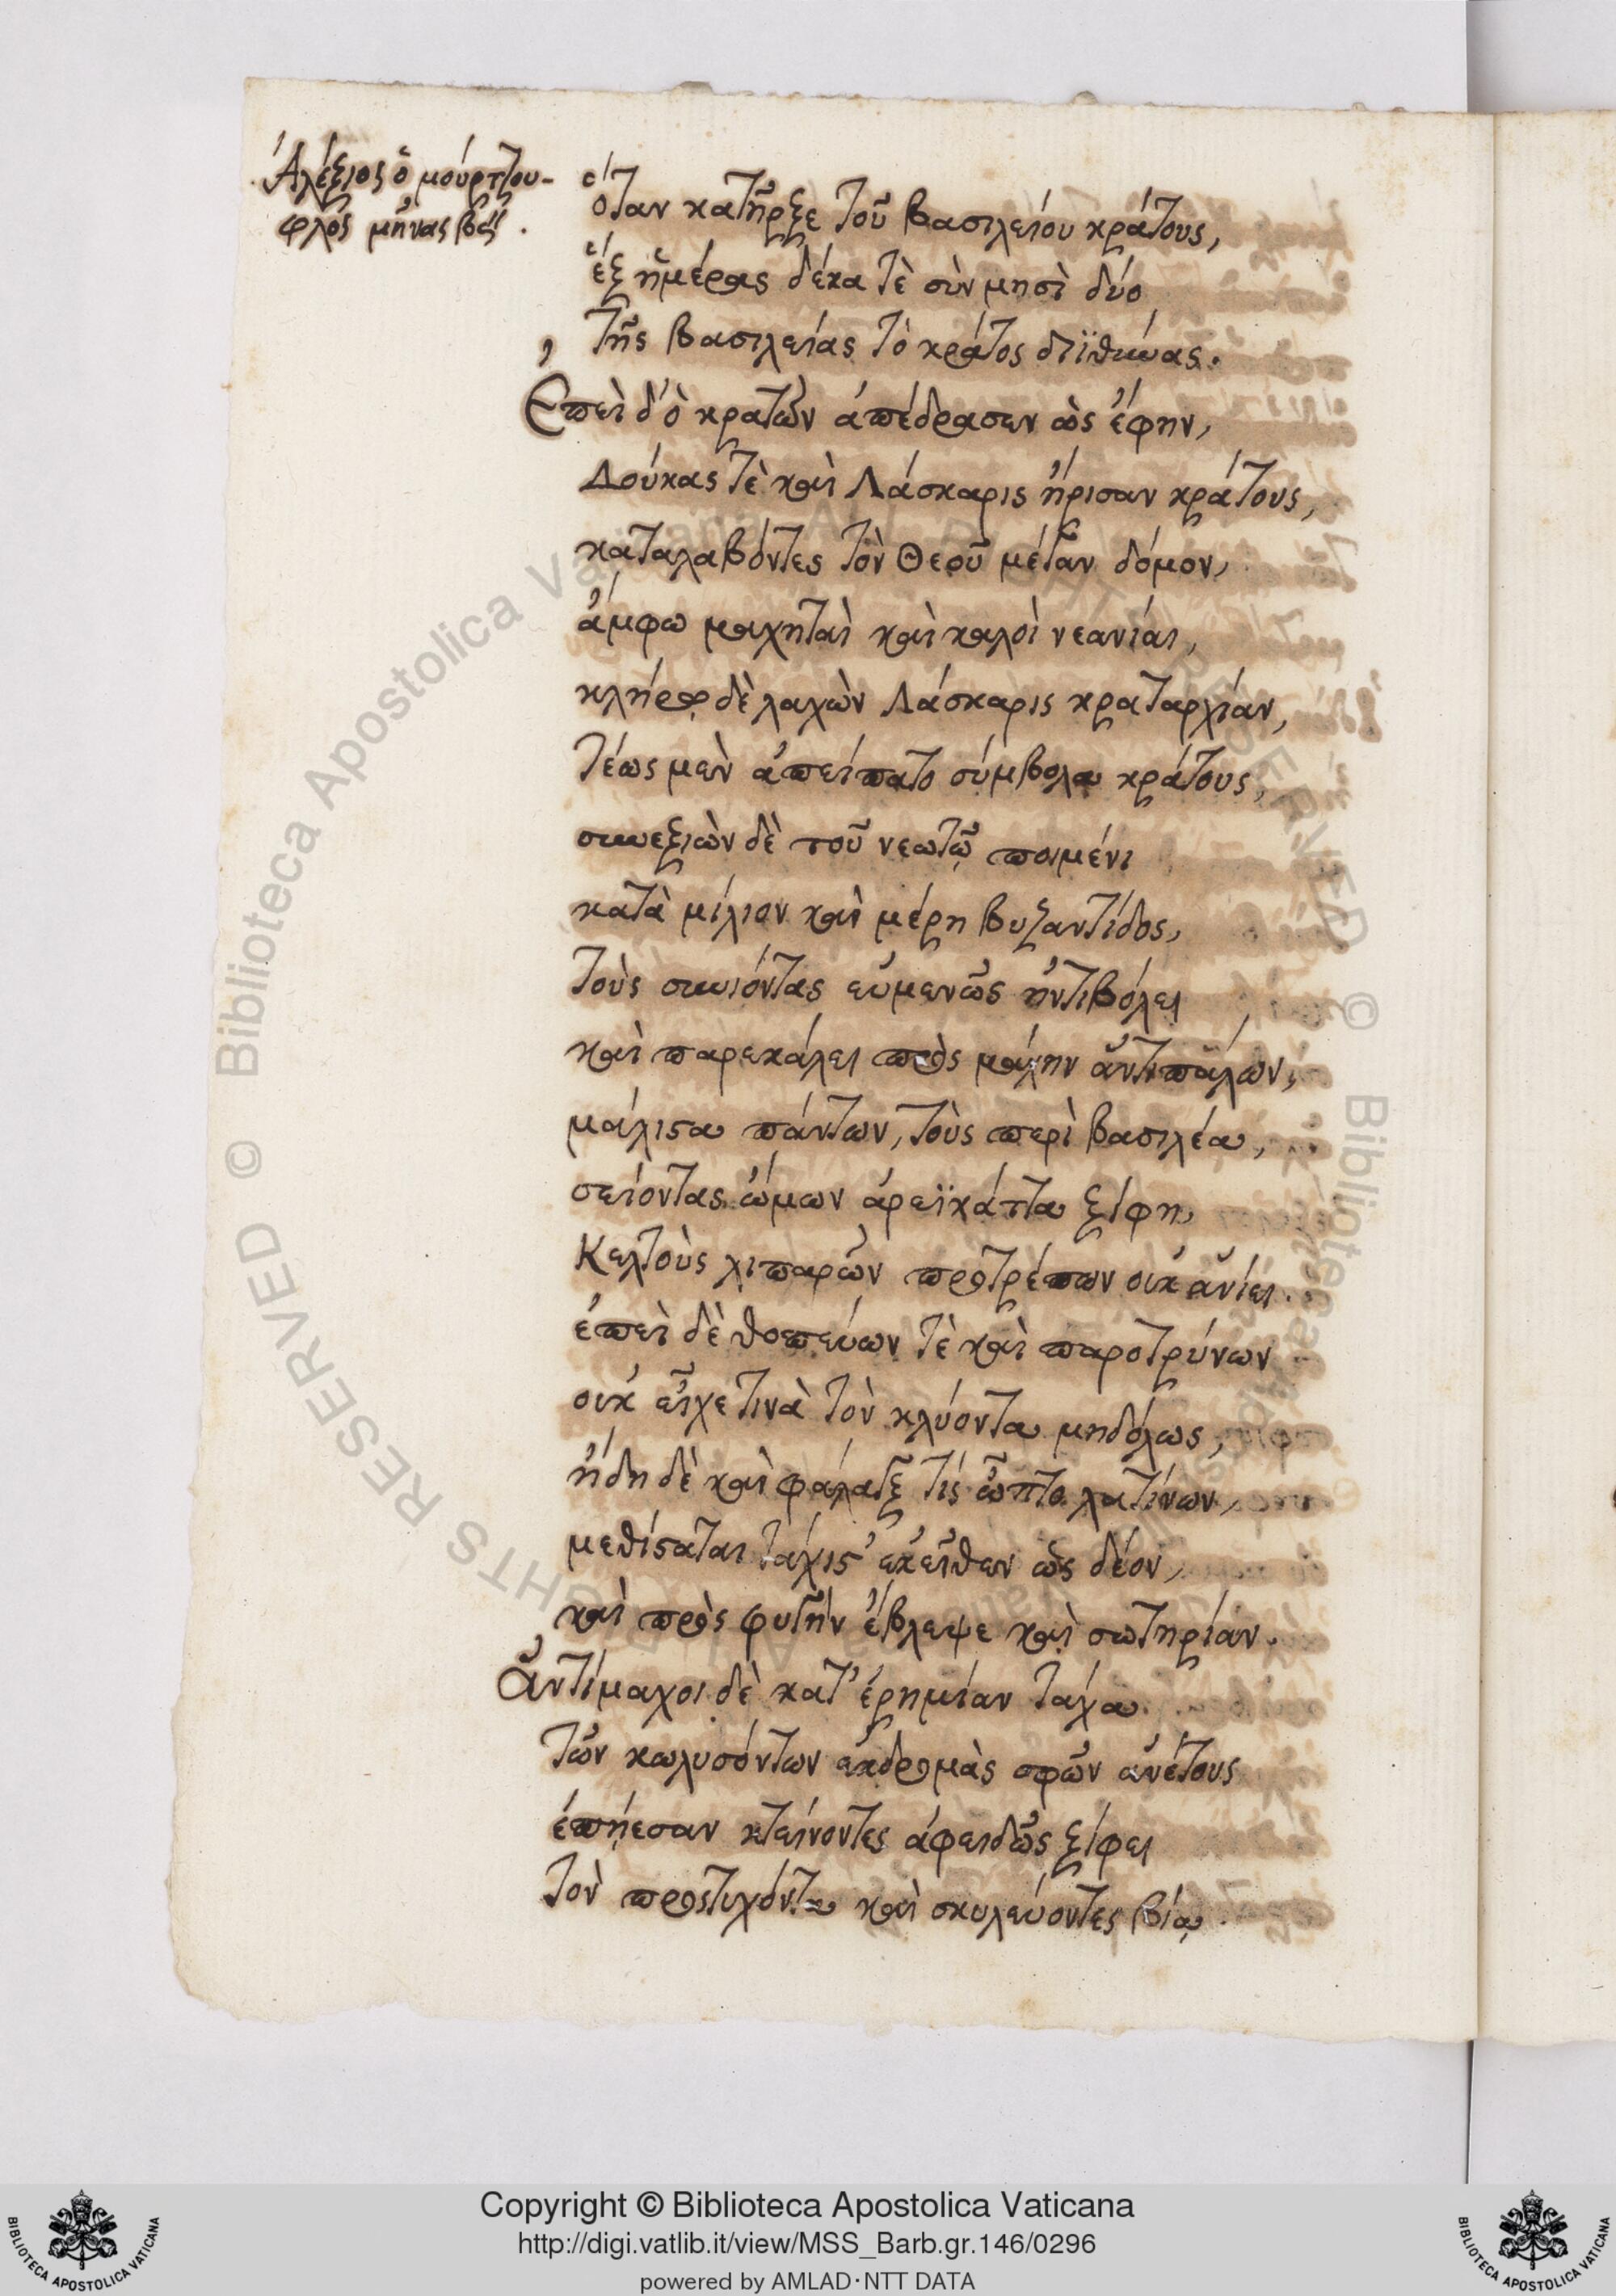 Ἀλέξιος ὁ μούρτζου-
φλος μῆνας βς΄.
ὅταν κατῆρξε τοῦ βασιλείου κράτους,
ἓξ ἡμέρας δέκα τὲ σὺν μησὶ δύο
τῆς βασιλείας τὸ κράτος διϊθύνας.
Ἐπεὶ δ' ὁ κρατῶν ἀπέδρασεν ὡς ἔφην,
Δούκας τὲ καὶ Λάσκαρις ἤρισαν κράτους,
καταλαβόντες τὸν Θεοῦ μέγαν δόμον,
ἄμφω μαχηταὶ καὶ καλοὶ νεανίαι,
κλήρῳ δὲ λαχὼν Λάσκαρις κραταρχίαν,
τέως μὲν ἀπείπατο σύμβολα κράτους,
συνεξιὼν δὲ τοῦ νεωτῷ ποιμένι
κατὰ μίλιον καὶ μέρη βυζαντίδος,
τοὺς συνιόντας εὐμενῶς ἠντιβόλει
καὶ παρεκάλει πρὸς μάχην ἀντιπάλων,
μάλιστα πάντων, τοὺς περὶ βασιλέα,
σείοντας ὤμων ἀρεϊκάττα ξίφη,
Κελτοὺς λιπαρῶν προτρέπων οὐκ ἀνίει.
ἐπεὶ δὲ θωπεύων τὲ καὶ παροτρύνων
οὐκ εἶχε τινὰ τὸν κλύοντα μηδόλως,
ἤδη δὲ καὶ φάλαγξ τίς ὦπτο λατίνων,
μεθίσταται τάχιστ' ἐκεῖθεν ὡς δέον,
καὶ πρὸς φυγὴν ἔβλεψε καὶ σωτηρίαν.
Ἀντίμαχοι δὲ κατ' ἐρημίαν τάχα
τῶν κωλυσόντων ἐκδρομὰς σφῶν ἀνέτους
ἐπῄεσαν κτείνοντες ἀφειδῶς ξίφει
τὸν προστυχόντα καὶ σκυλεύοντες βίᾳ.
Copyright © Biblioteca Apostolica Vaticana
http://digi.vatlib.it/view/MSS_Barb.gr.146/0296
powered by AMLAD·NTT DATA